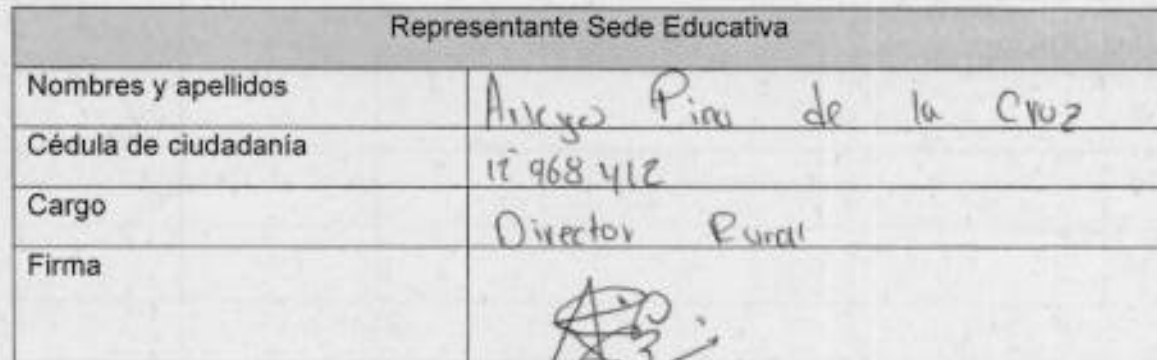 Representante Sede Educativa
Nombres y apellidos
de la Cruz
Cédula de ciudadanía
12 968 412
Cargo
Director Rural
Firma